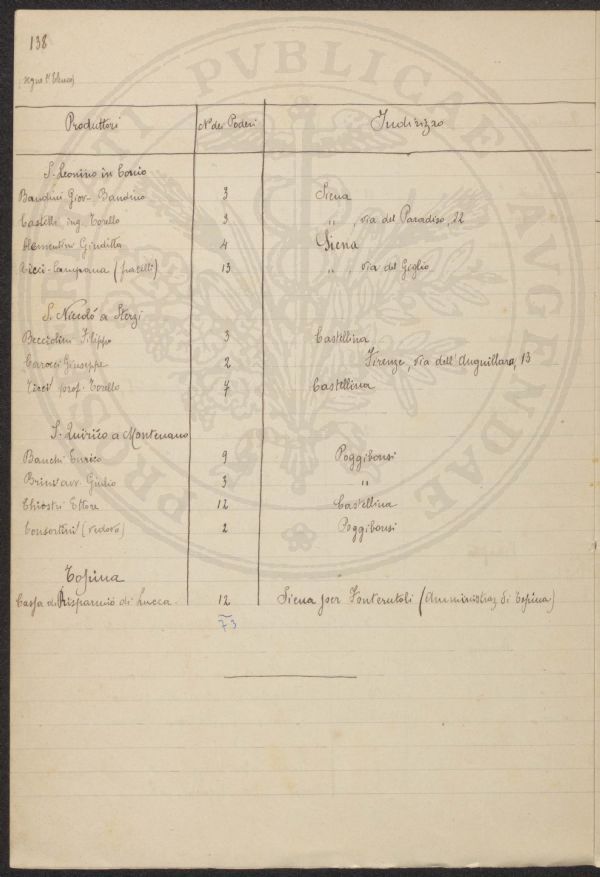 138
segue
Produttori N° dei Poderi Indirizzo
S. Leonino in Conio
Bandini Giov- Bandino 3 Siena
Castelli ing. Torello 3 " , via del Paradiso, 22
Clementini Giuditta 4 Siena
Ricci-Campana (fratelli) 13 " , via del Giglio
S. Niccolò a Sterzi
Becciolini Filippo 3 Castellina
Carocci Giuseppe 2 Firenze, via dell'Anguillara, 13
Ticci prof. Torello 7 Castellina
S. Quirico a Montenano
Bianchi Enrico 9 Poggibonsi
Brini avv. Giulio 3 "
Chiostri Ettore 12 Castellina
Consortini (vedova) 2 Poggibonsi
Topina
Cassa di Risparmio di Lucca. 12 Siena per Fonterutoli (Amministraz di Topina)
73
PROSPERITATI PVBLICAE AVGENDAE